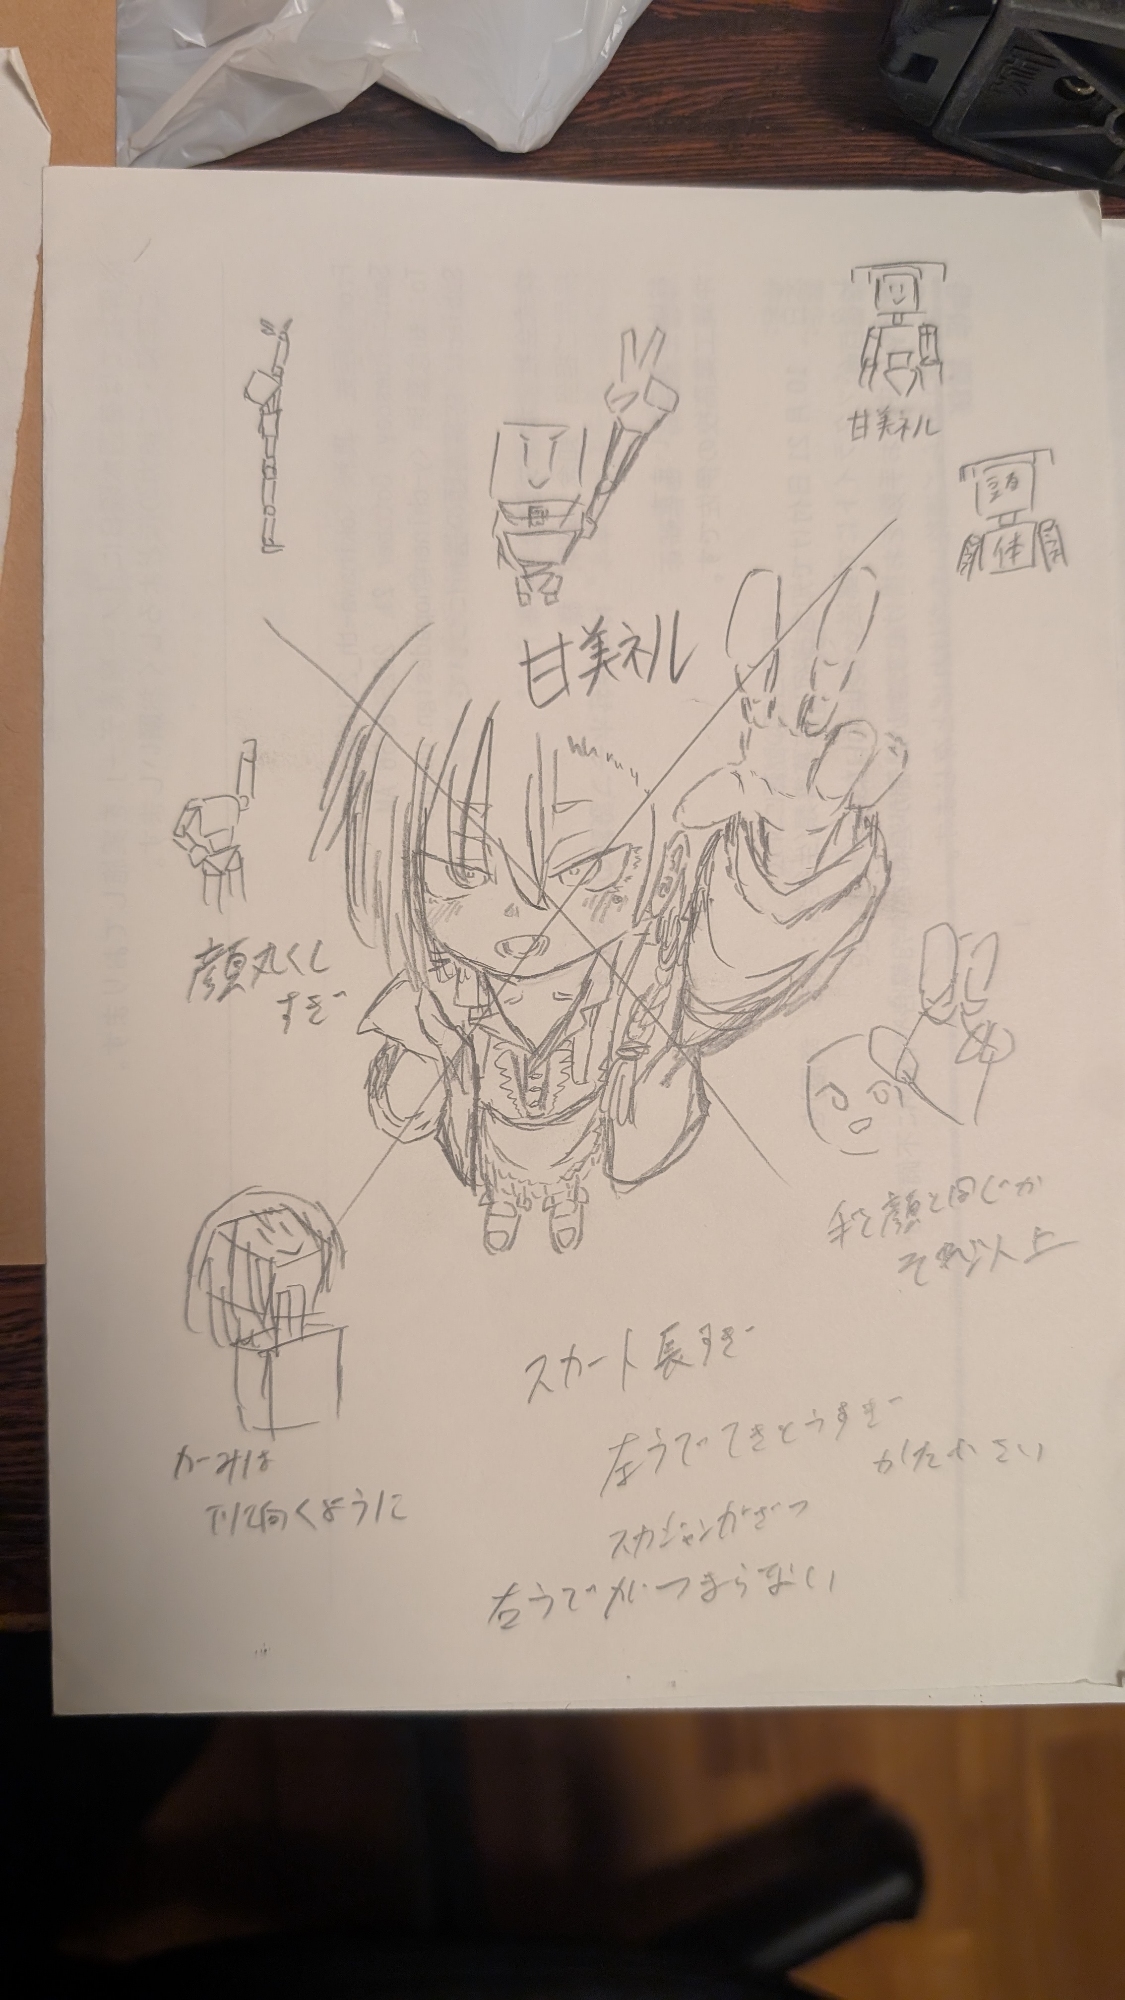 甘美ネル
体
甘美ネル
顔丸くし
すぎ
手を顔と同じか
それ以上
スカート長すぎ
左うでてきとうすぎ
かたい
スカジャンがざつ
右うでがつまらない
下に向くように